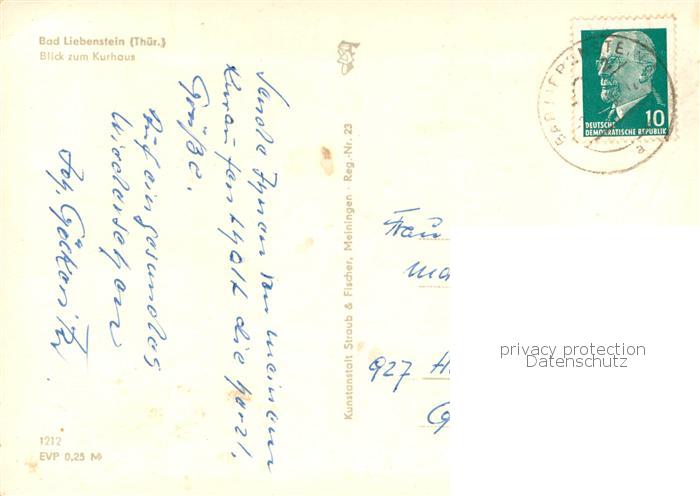 Bad Liebenstein (Thür.)
Blick zum Kurhaus
Sende Ihnen von meinem
Kuraufenthalt die herzl.
Grüße.
Auf ein gesundes
Wiedersehen
Joh.
Kunstanstalt Straub & Fischer, Meiningen · Reg.-Nr. 23
10
DEUTSCHE
DEMOKRATISCHE REPUBLIK
BAD LIEBENSTEIN
Frau
Ma
927 H
privacy protection
Datenschutz
1212
EVP 0,25 M